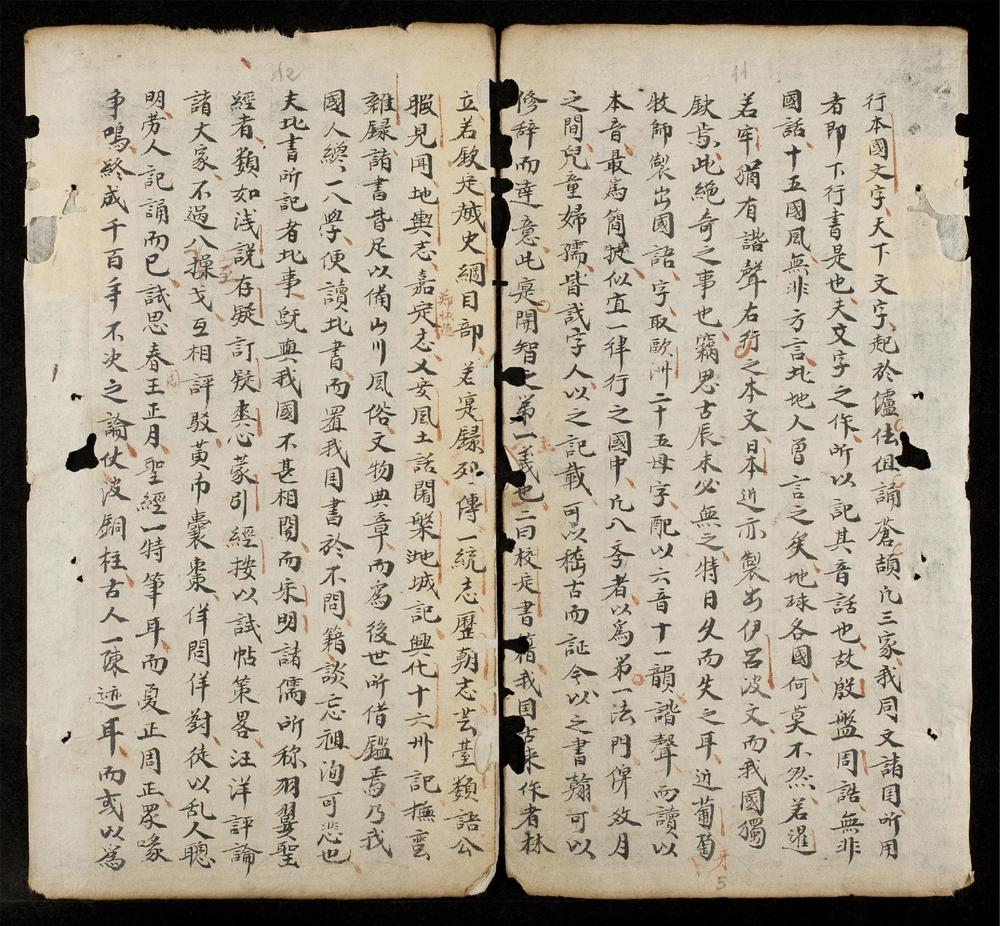 11
行本國文字天下文字起於儘佉伹誦蒼頡凡三家我同文諸囯所用
者即下行書是也夫文字之作所以記其音話也故殷盤周誥無非
國話十五國風無非方言北地人曾言之矣地球各國何莫不然若暹
若牢猶有諧聲右行之本文日本近亦製出伊呂波文而我國獨
欽焉此絶奇之事也竊思古辰未必無之特日久而失之耳近葡萄
牙
牧師製出國語字取歐洲二十五母字配以六音十一韻諧聲而讀以
本音最爲簡捷似宜一律行之國中凡入季者以爲第一法門俾效月
之間兒童婦孺皆識字人以之記載可以稽古而証今以之書翰可以
修辞而達意此寔開智之第一義也二曰校定書籍我国古来作者林
5
12
立若欽定越史綱目部若寔録列傳一統志歷朝志芸臺類語公
暇見聞地輿志嘉定志乂安風土話閑槃地城記興化十六州記撫蛮
鄭懷德
雜録諸書皆足以備山川風俗文物典章而爲後世所借鑑焉乃我
國人總一入學便讀北書而置我囯書於不問籍談忘祖洵可悲也
夫北書所記者北事旣與我國不甚相関而宋明諸儒所称羽翼聖
經者類如浅說存疑訂疑輿心蒙引經按以試帖策畧汪洋評論
諸大家不過入操戈互相評駁黃巾囊棗佯問佯對徒以乱人聰
室
明労人記誦而已試思春王正月聖經一特筆耳而夏正周正眾喙
周
争鳴終成千百年不决之論仗波銅柱古人一陳迹耳而或以爲